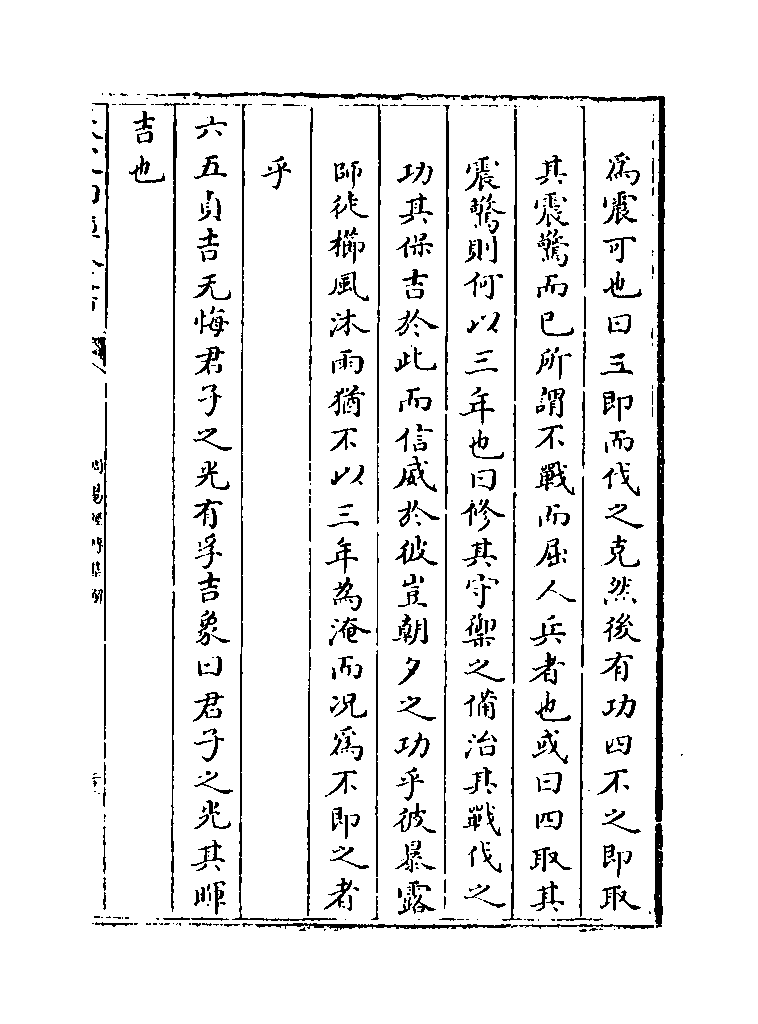 爲震可也曰五即而伐之克然後有功四不之即取
其震驚而已所謂不戰而屈人兵者也或曰四取其
震驚則何以三年也曰修其守禦之備治其戰伐之
功其保吉於此而信威於彼豈朝夕之功乎彼暴露
師徒櫛風沐雨猶不以三年為淹而况爲不即之者
乎
六五貞吉无悔君子之光有孚吉象曰君子之光其暉
吉也